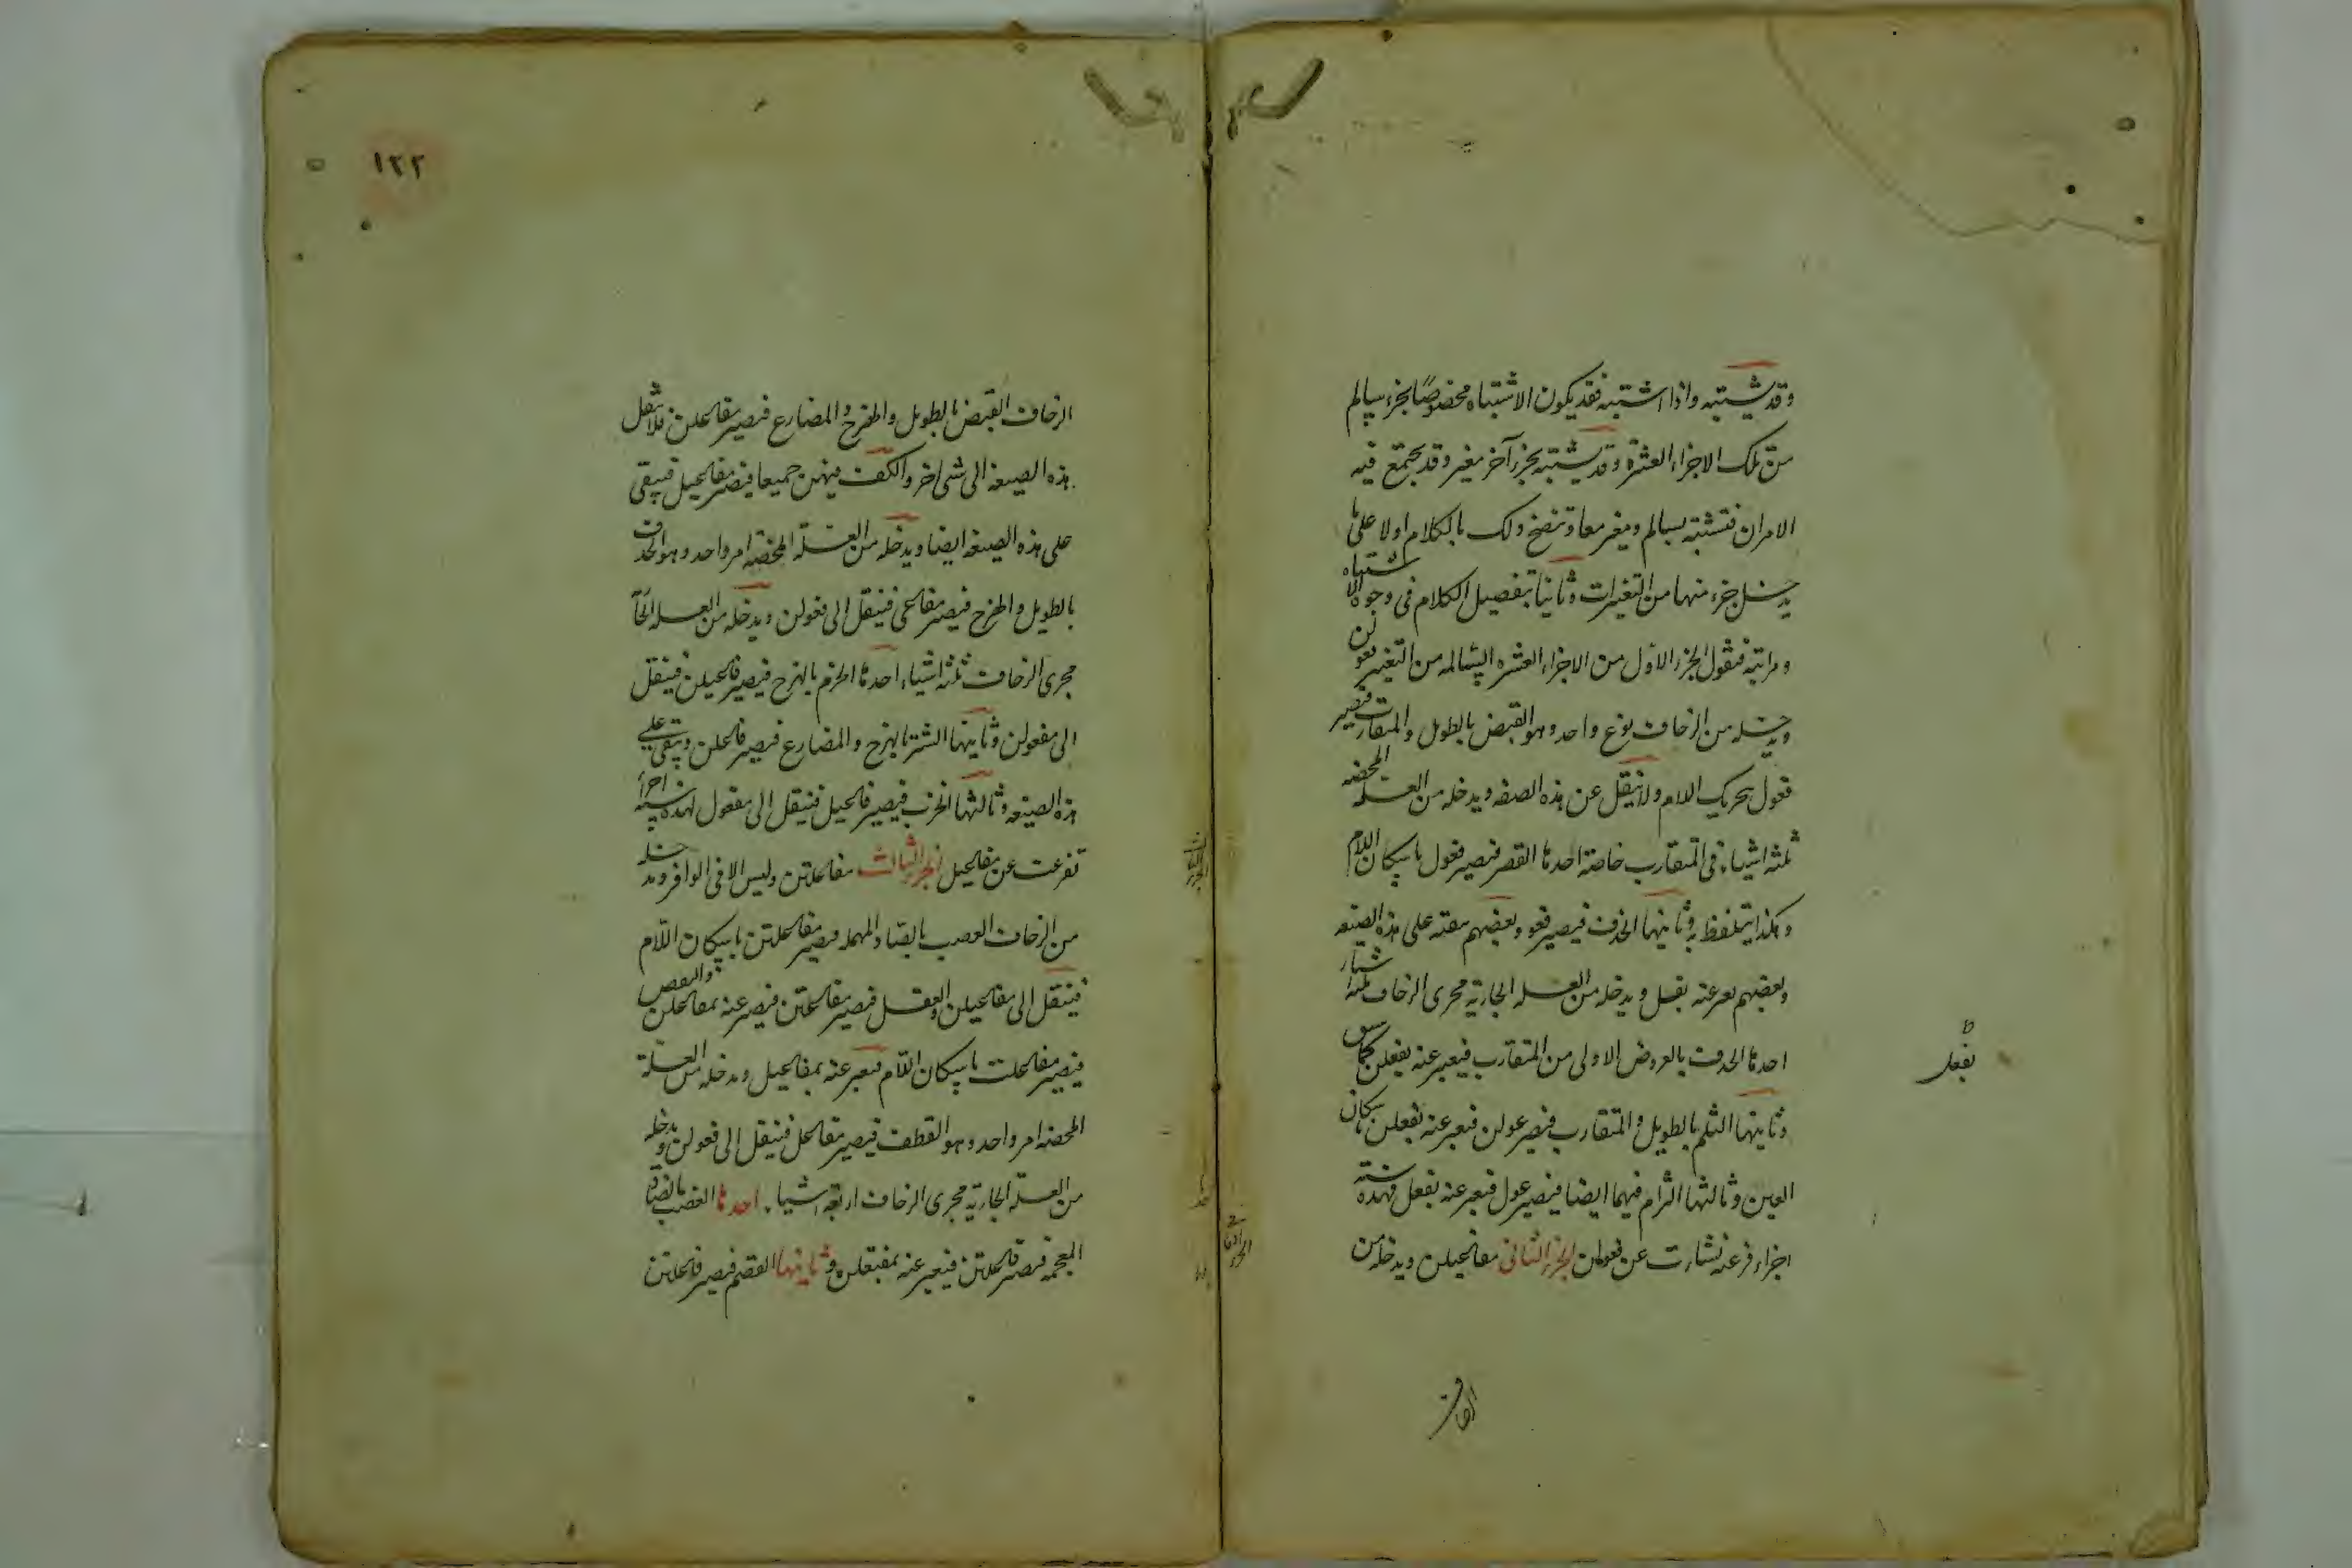 وقد يشتبه واذا اشتبه فقد يكون الاشتباه مخصوصًا بجزء سالم
من تلك الاجزاء العشرة وقد يشتبه بجزء آخر مغير وقد يجتمع فيه
الامران فتشتبه بسالم ومغير معا وتتضح ذلك بالكلام اولا على ما
يدخل جزء منها من التغيرات وثانيا بتفصيل الكلام فى وجوه الاشتباه
ومراتبه فنقول الجزء الاول من الاجزاء العشره السالمه من التغيير فعولن
ويدخله من الزحاف نوع واحد وهو القبض بالطويل والمتقارب فتصير
فعول بتحريك اللام ولا ينقل عن هذه الصيغه ويدخله من العلل المحضه
ثلثه اشياء فى المتقارب خاصة احدها القصر فيصير فعول باسكان اللام
وهكذا يتلفظ به وثانيها الحذف فيصير فعو وبعضهم يبقيه على هذه الصيغه
وبعضهم يعبر عنه بفعل ويدخله من العلل الجارية مجرى الزحاف ثلثه اشياء
احدها الحذف بالعروض الاولى من المتقارب فيعبر عنه بفعل كما سبق
وثانيها الثلم بالطويل والمتقارب فيصير عولن فيعبر عنه بفعلن باسكان
العين وثالثها الثرم فيهما ايضا فيصير عول فيعبر عنه بفعل فهذه ستة
اجزاء فرعيه نشأت عن فعولن الجزء الثانى مفاعيلن ويدخله من
بفعل
الزحاف
١٢٢
الزحاف القبض بالطويل والهزج والمضارع فيصير مفاعلن فلا تنقل
هذه الصيغه الى شئ آخر والكف فيهن جميعا فيصير مفاعيل فيبقى
على هذه الصيغه ايضا ويدخله من العلل المحضه امر واحد وهو الحذف
بالطويل والهزج فيصير مفاعى فينقل الى فعولن ويدخله من العلل الجارية
مجرى الزحاف ثلثه اشياء احدها الخرم بالهزج فيصير فاعيلن فينقل
الى مفعولن وثانيها الشتر بالهزج والمضارع فيصير فاعلن ويبقى على
هذه الصيغه وثالثها الخرب فيصير فاعيل فينقل الى مفعول فهذه ستة اجزاء
تفرعت عن مفاعيلن الجزء الثالث مفاعلتن وليس الا فى الوافر ويدخله
من الزحاف العصب بالصاد المهمله فيصير مفاعلتن باسكان اللام
فينقل الى مفاعيلن والعقل فيصير مفاعتن فيعبر عنه بمفاعلن والنقص
فيصير مفاعلت باسكان اللام فيعبر عنه بمفاعيل ويدخله من العلل
المحضه امر واحد وهو القطف فيصير مفاعل فينقل الى فعولن ويدخله
من العلل الجارية مجرى الزحاف اربعة اشياء احدها العضب بالضاد
المعجمه فيصير فاعلتن فيعبر عنه بمفتعلن وثانيها القصم فيصير فاعلتن